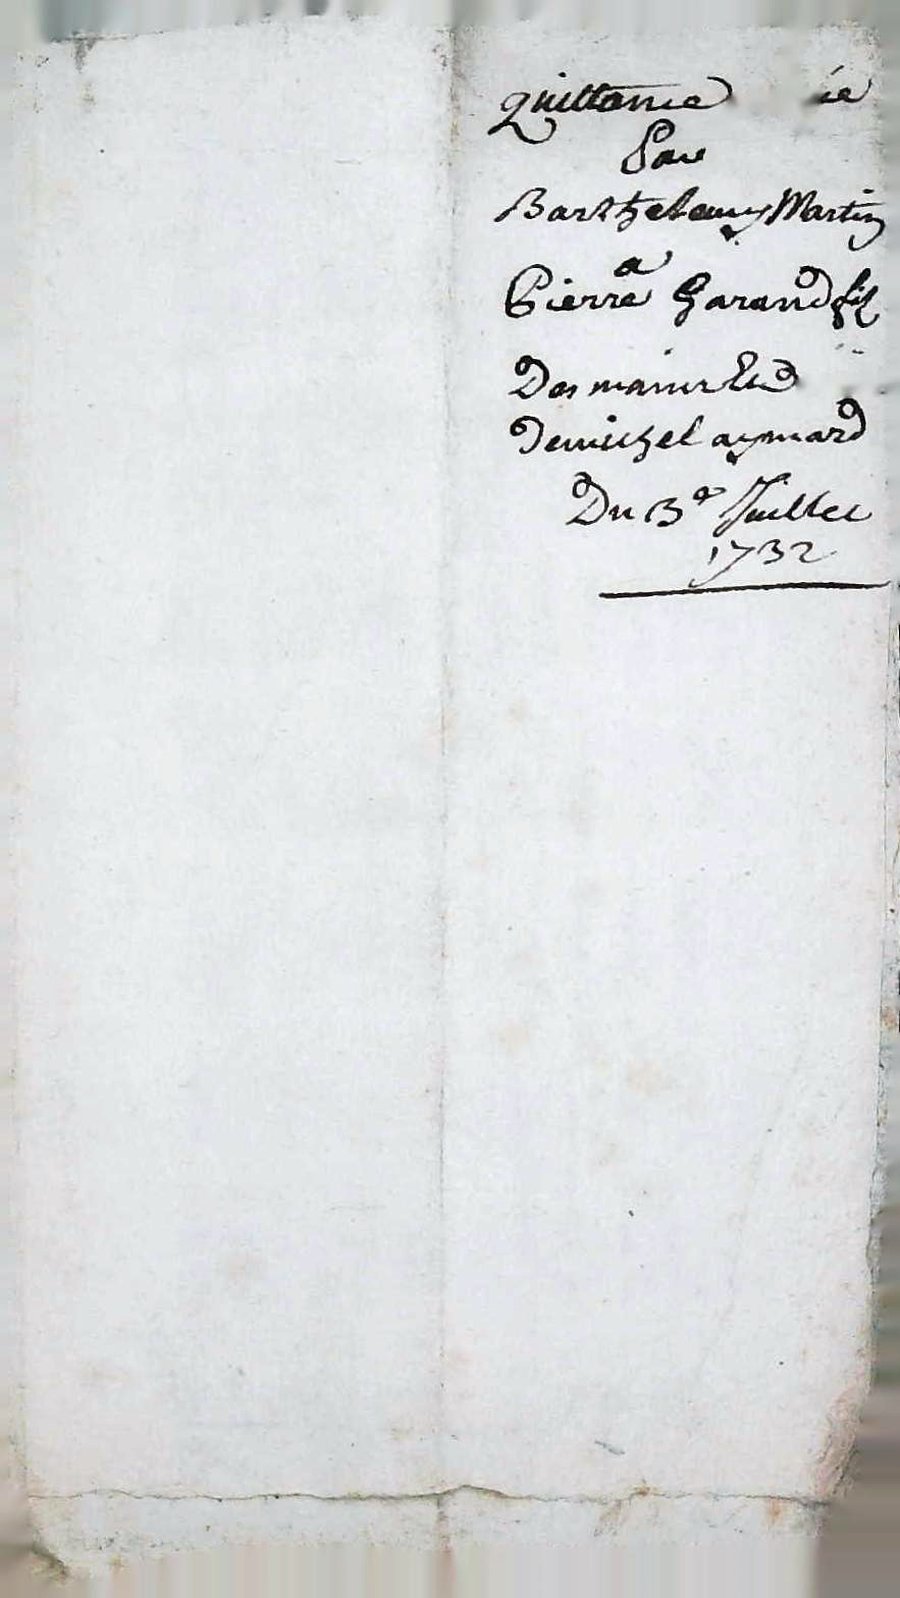 quittance
Par
Barthelemy Martin
a
Pierre Garand fils
Des mains
De michel aymard
Du 3e Juillet
1732